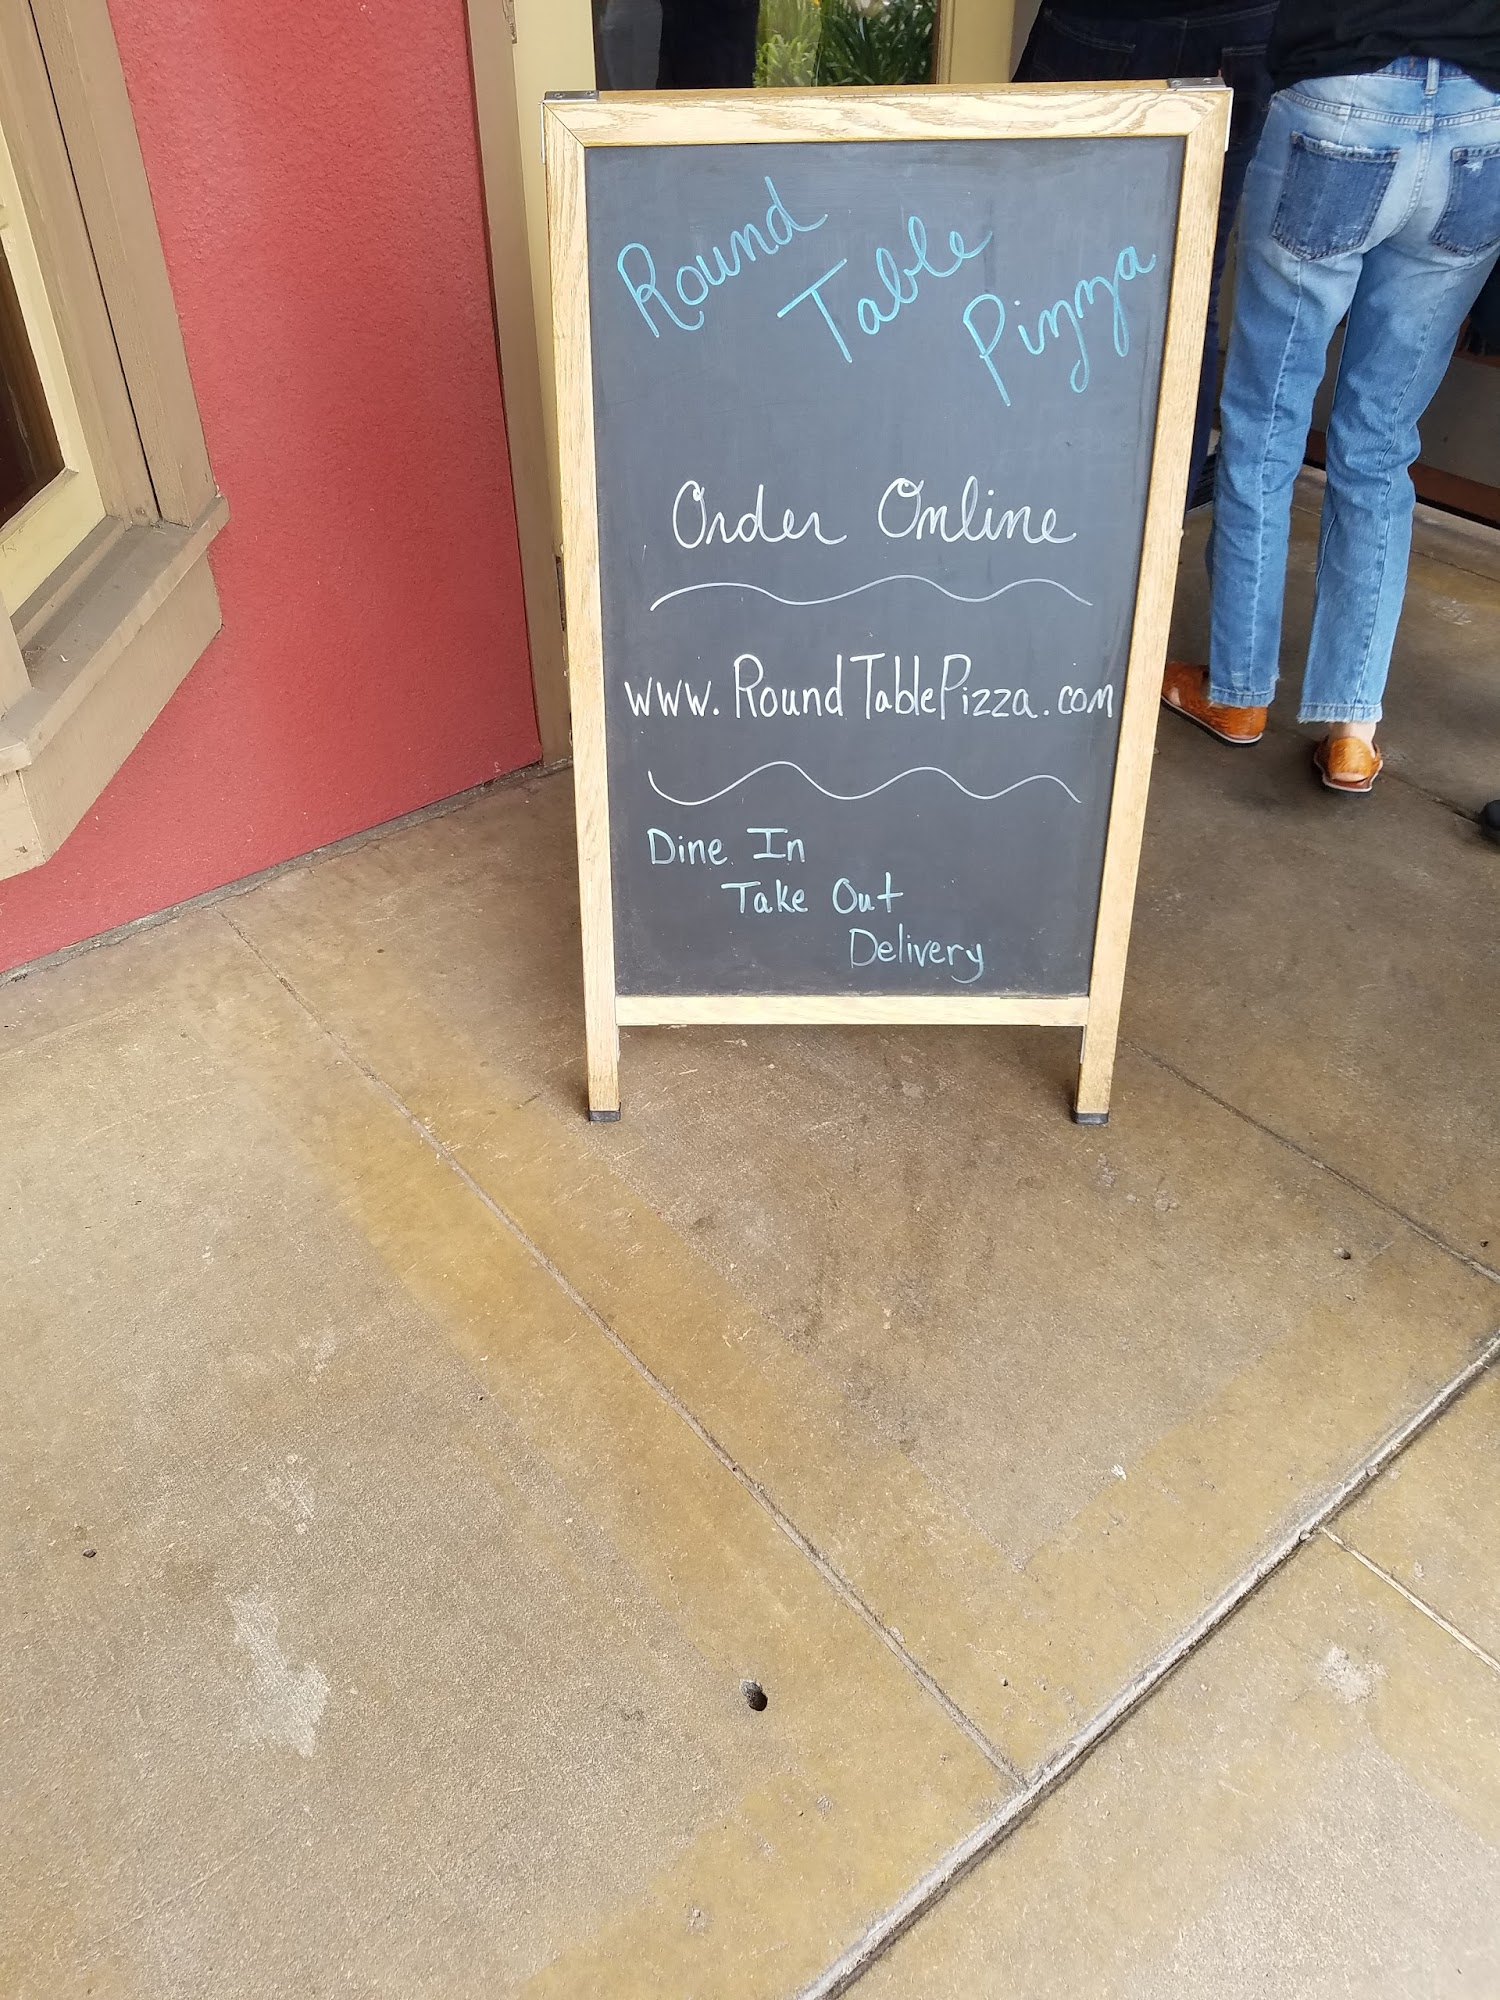 Round
Table
Pizza
Order Online
www.RoundTablePizza.com
Dine In
Take Out
Delivery